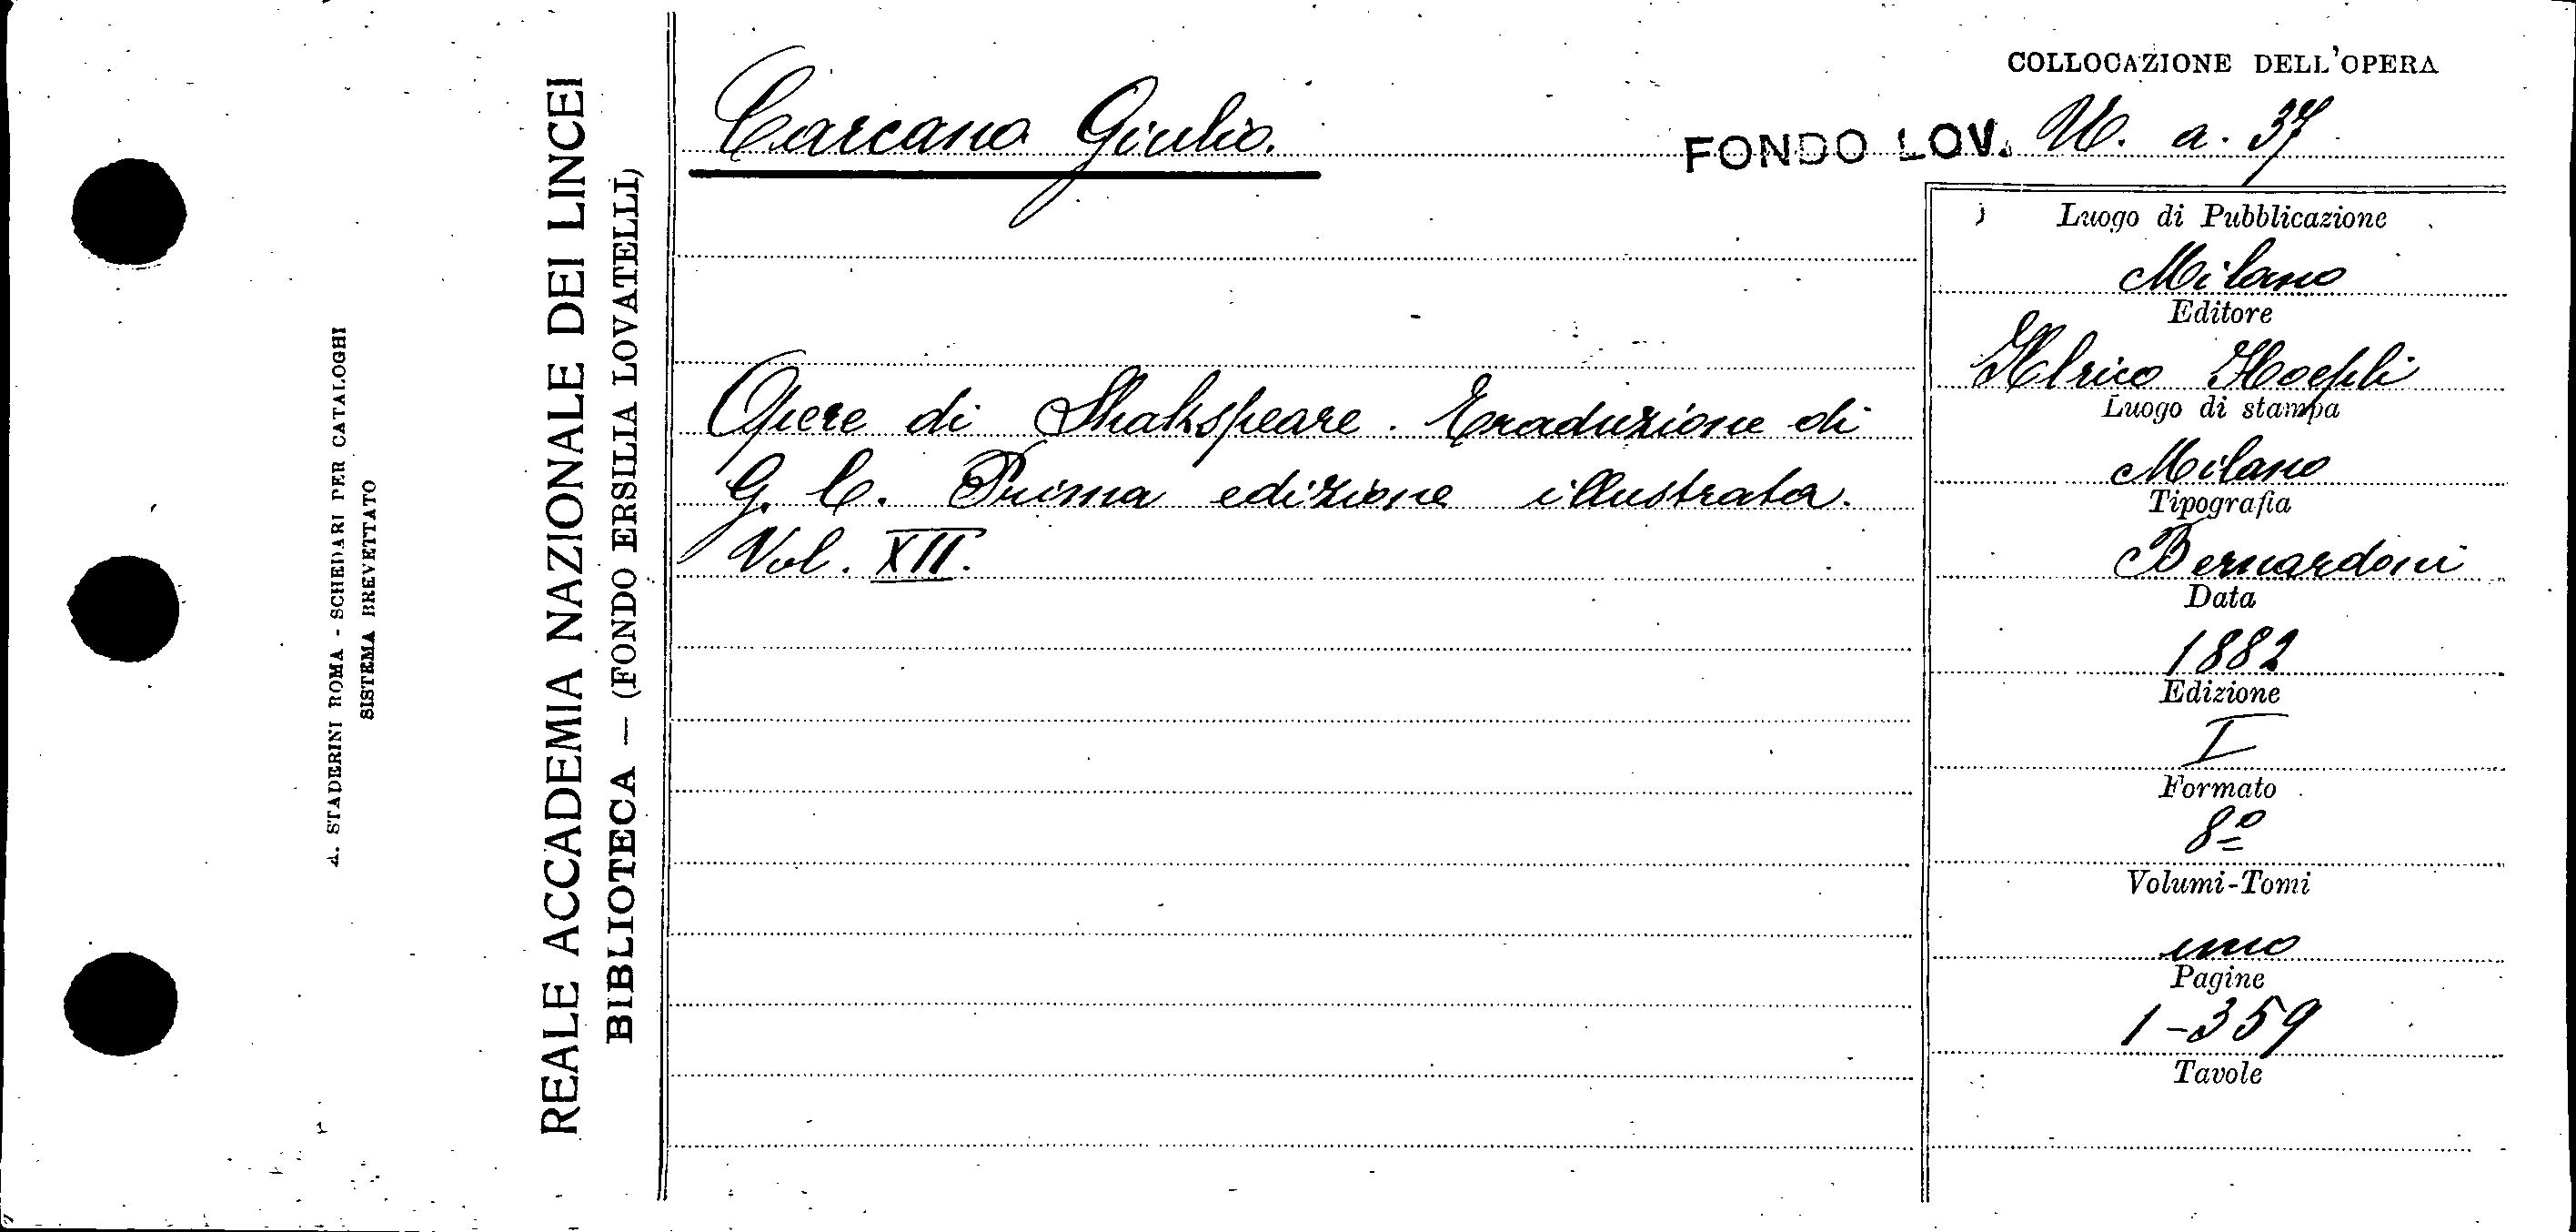 A. STADERINI ROMA - SCHEDARI PER CATALOGHI
SISTEMA BREVETTATO
REALE ACCADEMIA NAZIONALE DEI LINCEI
BIBLIOTECA — (FONDO ERSILIA LOVATELLI)
Carcano Giulio.
COLLOCAZIONE DELL'OPERA
FONDO LOV. a. 37
Opere di Shakspeare. Traduzione di
G. C. Prima edizione illustrata.
Vol. XII.
Luogo di Pubblicazione
Milano
Editore
Ulrico Hoepli
Luogo di stampa
Milano
Tipografia
Bernardoni
Data
1882
Edizione
I
Formato
8º
Volumi-Tomi
uno
Pagine
1-359
Tavole